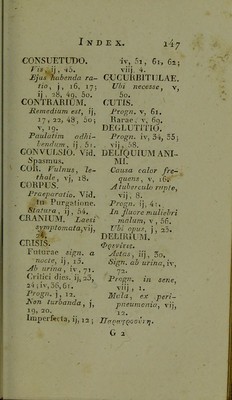 INDEX. 147
CONSUETUDO.
Vis, ij, 45.
Ejus habenda ra-
tio, j, 16, 17;
ij, 28, 49, 50.
CONTRARIUM.
Remedium est, ij,
17, 22, 48, 50;
v, 19.
Paulatim adhi-
bendum, ij, 51.
CONVULSIO. Vid.
Spasmus.
COR. Vulnus, le-
thale, vj, 18.
CORPUS.
Præparatio. Vid.
in Purgatione.
Statura, ij, 54.
CRANIUM. Læsi
symptomata, vij,
24.
CRISIS.
Futuræ sign. a
nocte, ij, 13.
Ab urina, iv, 71.
Critici dies. ij, 23,
24; iv, 36, 61.
Progn. j, 12.
Non turbanda, j,
19, 20.
Imperfecta, ij, 12;
iv, 51, 61, 62;
viij, 4.
CUCURBITULAE.
Ubi necesse, v,
50.
CUTIS.
Progn. v, 61.
Raræ. v, 69.
DEGLUTITIO.
Progn. iv, 34, 35;
vij, 58.
DELIQUIUM ANI-
MI.
Causa calor fre-
quens, v, 16.
A tuberculo rupto,
vij, 8.
Progn. ij, 41.
In fluore muliebri
malum, v, 56.
Ubi opus, j, 23.
DELIRIUM.
Φρενῖτις.
Aetas, iij, 30.
Sign. ab urina, iv,
72.
Progn. in sene,
viij, 1.
Mala, ex peri-
pneumonia, vij,
12.
Παραφροσύνη.
G 2